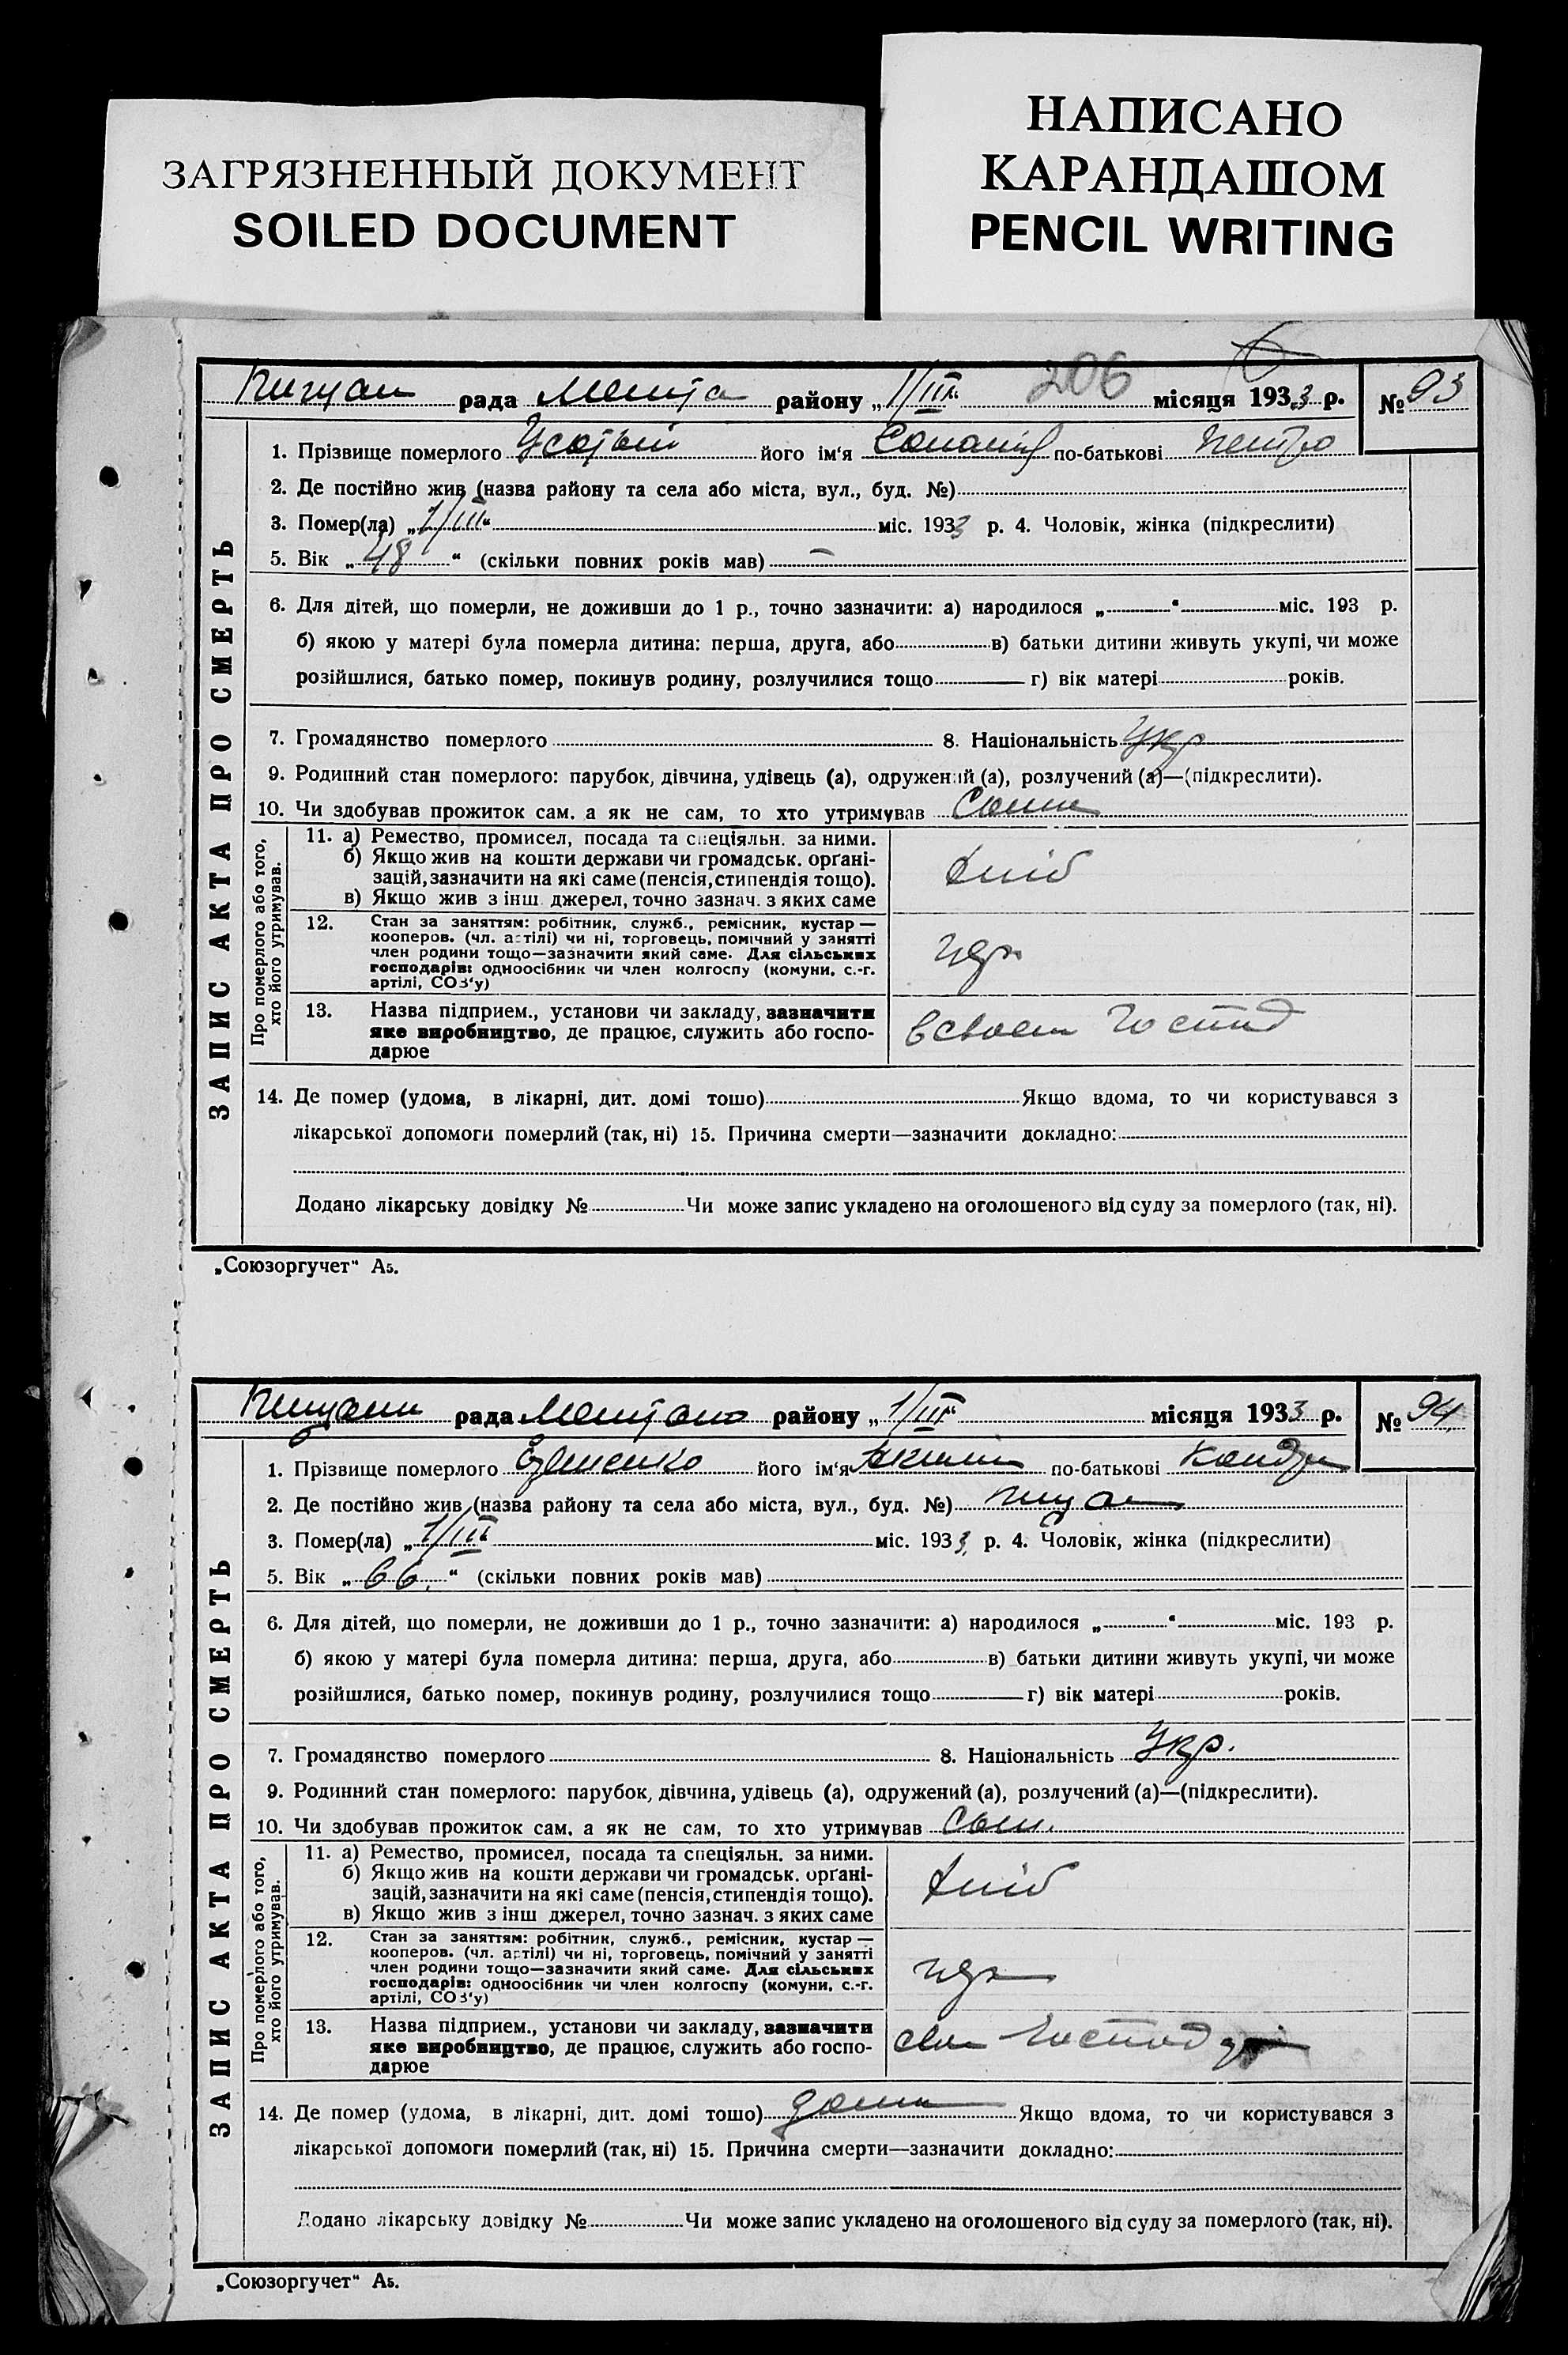 ЗАГРЯЗНЕННЫЙ ДОКУМЕНТ
SOILED DOCUMENT
НАПИСАНО
КАРАНДАШОМ
PENCIL WRITING
206
рада району „1/III“ місяця 1933 р. № 93
ЗАПИС АКТА ПРО СМЕРТЬ
1. Прізвище померлого його ім‘я по-батькові
2. Де постійно жив (назва району та села або міста, вул., буд. №)
3. Помер(ла) „1/III“ міс. 1933 р. 4. Чоловік, жінка (підкреслити)
5. Вік „48“ (скільки повних років мав) —
6. Для дітей, що померли, не доживши до 1 р., точно зазначити: а) народилося „ “ міс. 193 р.
б) якою у матері була померла дитина: перша, друга, або в) батьки дитини живуть укупі, чи може
розійшлися, батько помер, покинув родину, розлучилися тощо г) вік матері років.
7. Громадянство померлого 8. Національність Укр
9. Родинний стан померлого: парубок, дівчина, удівець (а), одружений (а), розлучений (а)—(підкреслити).
10. Чи здобував прожиток сам. а як не сам, то хто утримував
Про померлого або того,
хто його утримував.
11. а) Ремество, промисел, посада та спеціяльн. за ними.
б) Якщо жив на кошти держави чи громадськ. орґані-
зацій, зазначити на які саме (пенсія, стипендія тощо).
в) Якщо жив з інш. джерел, точно зазнач. з яких саме
12. Стан за заняттям: робітник, служб., ремісник, кустар —
кооперов. (чл. артілі) чи ні, торговець, помічний у занятті
член родини тощо—зазначити який саме. Для сільських
господарів: одноосібник чи член колгоспу (комуни, с.-г.
артілі, СОЗ‘у)
13. Назва підприєм., установи чи закладу, зазначити
яке виробництво, де працює, служить або госпо-
дарює
14. Де помер (удома, в лікарні, дит. домі тошо) Якщо вдома, то чи користувався з
лікарської допомоги померлий (так, ні) 15. Причина смерти—зазначити докладно:
Додано лікарську довідку № Чи може запис укладено на оголошеного від суду за померлого (так, ні).
„Союзоргучет“ А5.
рада району „1/III“ місяця 1933 р. № 94
ЗАПИС АКТА ПРО СМЕРТЬ
1. Прізвище померлого його ім‘я по-батькові
2. Де постійно жив (назва району та села або міста, вул., буд. №)
3. Помер(ла) „1/III“ міс. 1933 р. 4. Чоловік, жінка (підкреслити)
5. Вік „66“ (скільки повних років мав)
6. Для дітей, що померли, не доживши до 1 р., точно зазначити: а) народилося „ “ міс. 193 р.
б) якою у матері була померла дитина: перша, друга, або в) батьки дитини живуть укупі, чи може
розійшлися, батько помер, покинув родину, розлучилися тощо г) вік матері років.
7. Громадянство померлого 8. Національність Укр.
9. Родинний стан померлого: парубок, дівчина, удівець (а), одружений (а), розлучений (а)—(підкреслити).
10. Чи здобував прожиток сам. а як не сам, то хто утримував
Про померлого або того,
хто його утримував.
11. а) Ремество, промисел, посада та спеціяльн. за ними.
б) Якщо жив на кошти держави чи громадськ. орґані-
зацій, зазначити на які саме (пенсія, стипендія тощо).
в) Якщо жив з інш джерел, точно зазнач. з яких саме
12. Стан за заняттям: робітник, служб., ремісник, кустар —
кооперов. (чл. артілі) чи ні, торговець, помічний у занятті
член родини тощо—зазначити який саме. Для сільських
господарів: одноосібник чи член колгоспу (комуни, с.-г.
артілі, СОЗ‘у)
13. Назва підприєм., установи чи закладу, зазначити
яке виробництво, де працює, служить або госпо-
дарює
14. Де помер (удома, в лікарні, дит. домі тошо) дома Якщо вдома, то чи користувався з
лікарської допомоги померлий (так, ні) 15. Причина смерти—зазначити докладно:
Додано лікарську довідку № Чи може запис укладено на оголошеного від суду за померлого (так, ні).
„Союзоргучет“ А5.